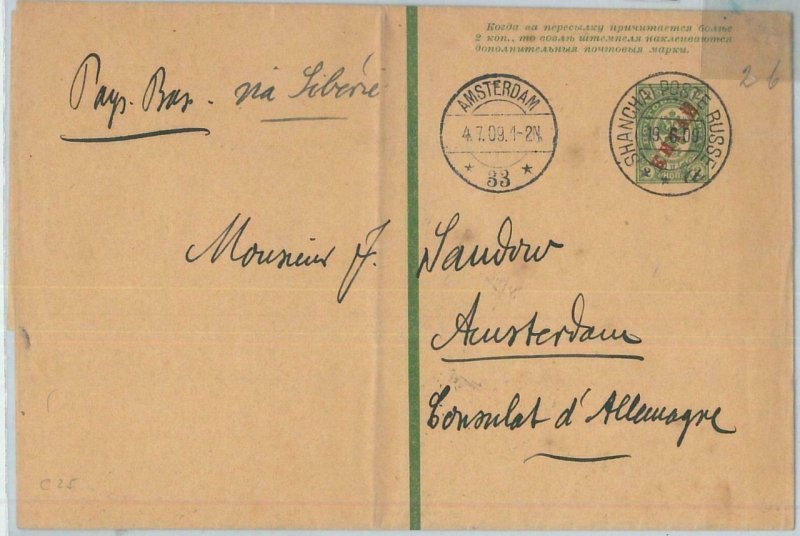 Когда за пересылку причитается болѣе
2 коп., то возлѣ штемпеля наклеиваются
дополнительныя почтовыя марки.
2 6
Pays-Bas. via Sibérie
AMSTERDAM
4.7.09.1-2N.
* 33 *
SHANGHAI POSTE RUSSE
19.6.09
КИТАЙ
Monsieur J. Sandow
Amsterdam
Consulat d'Allemagne
C25